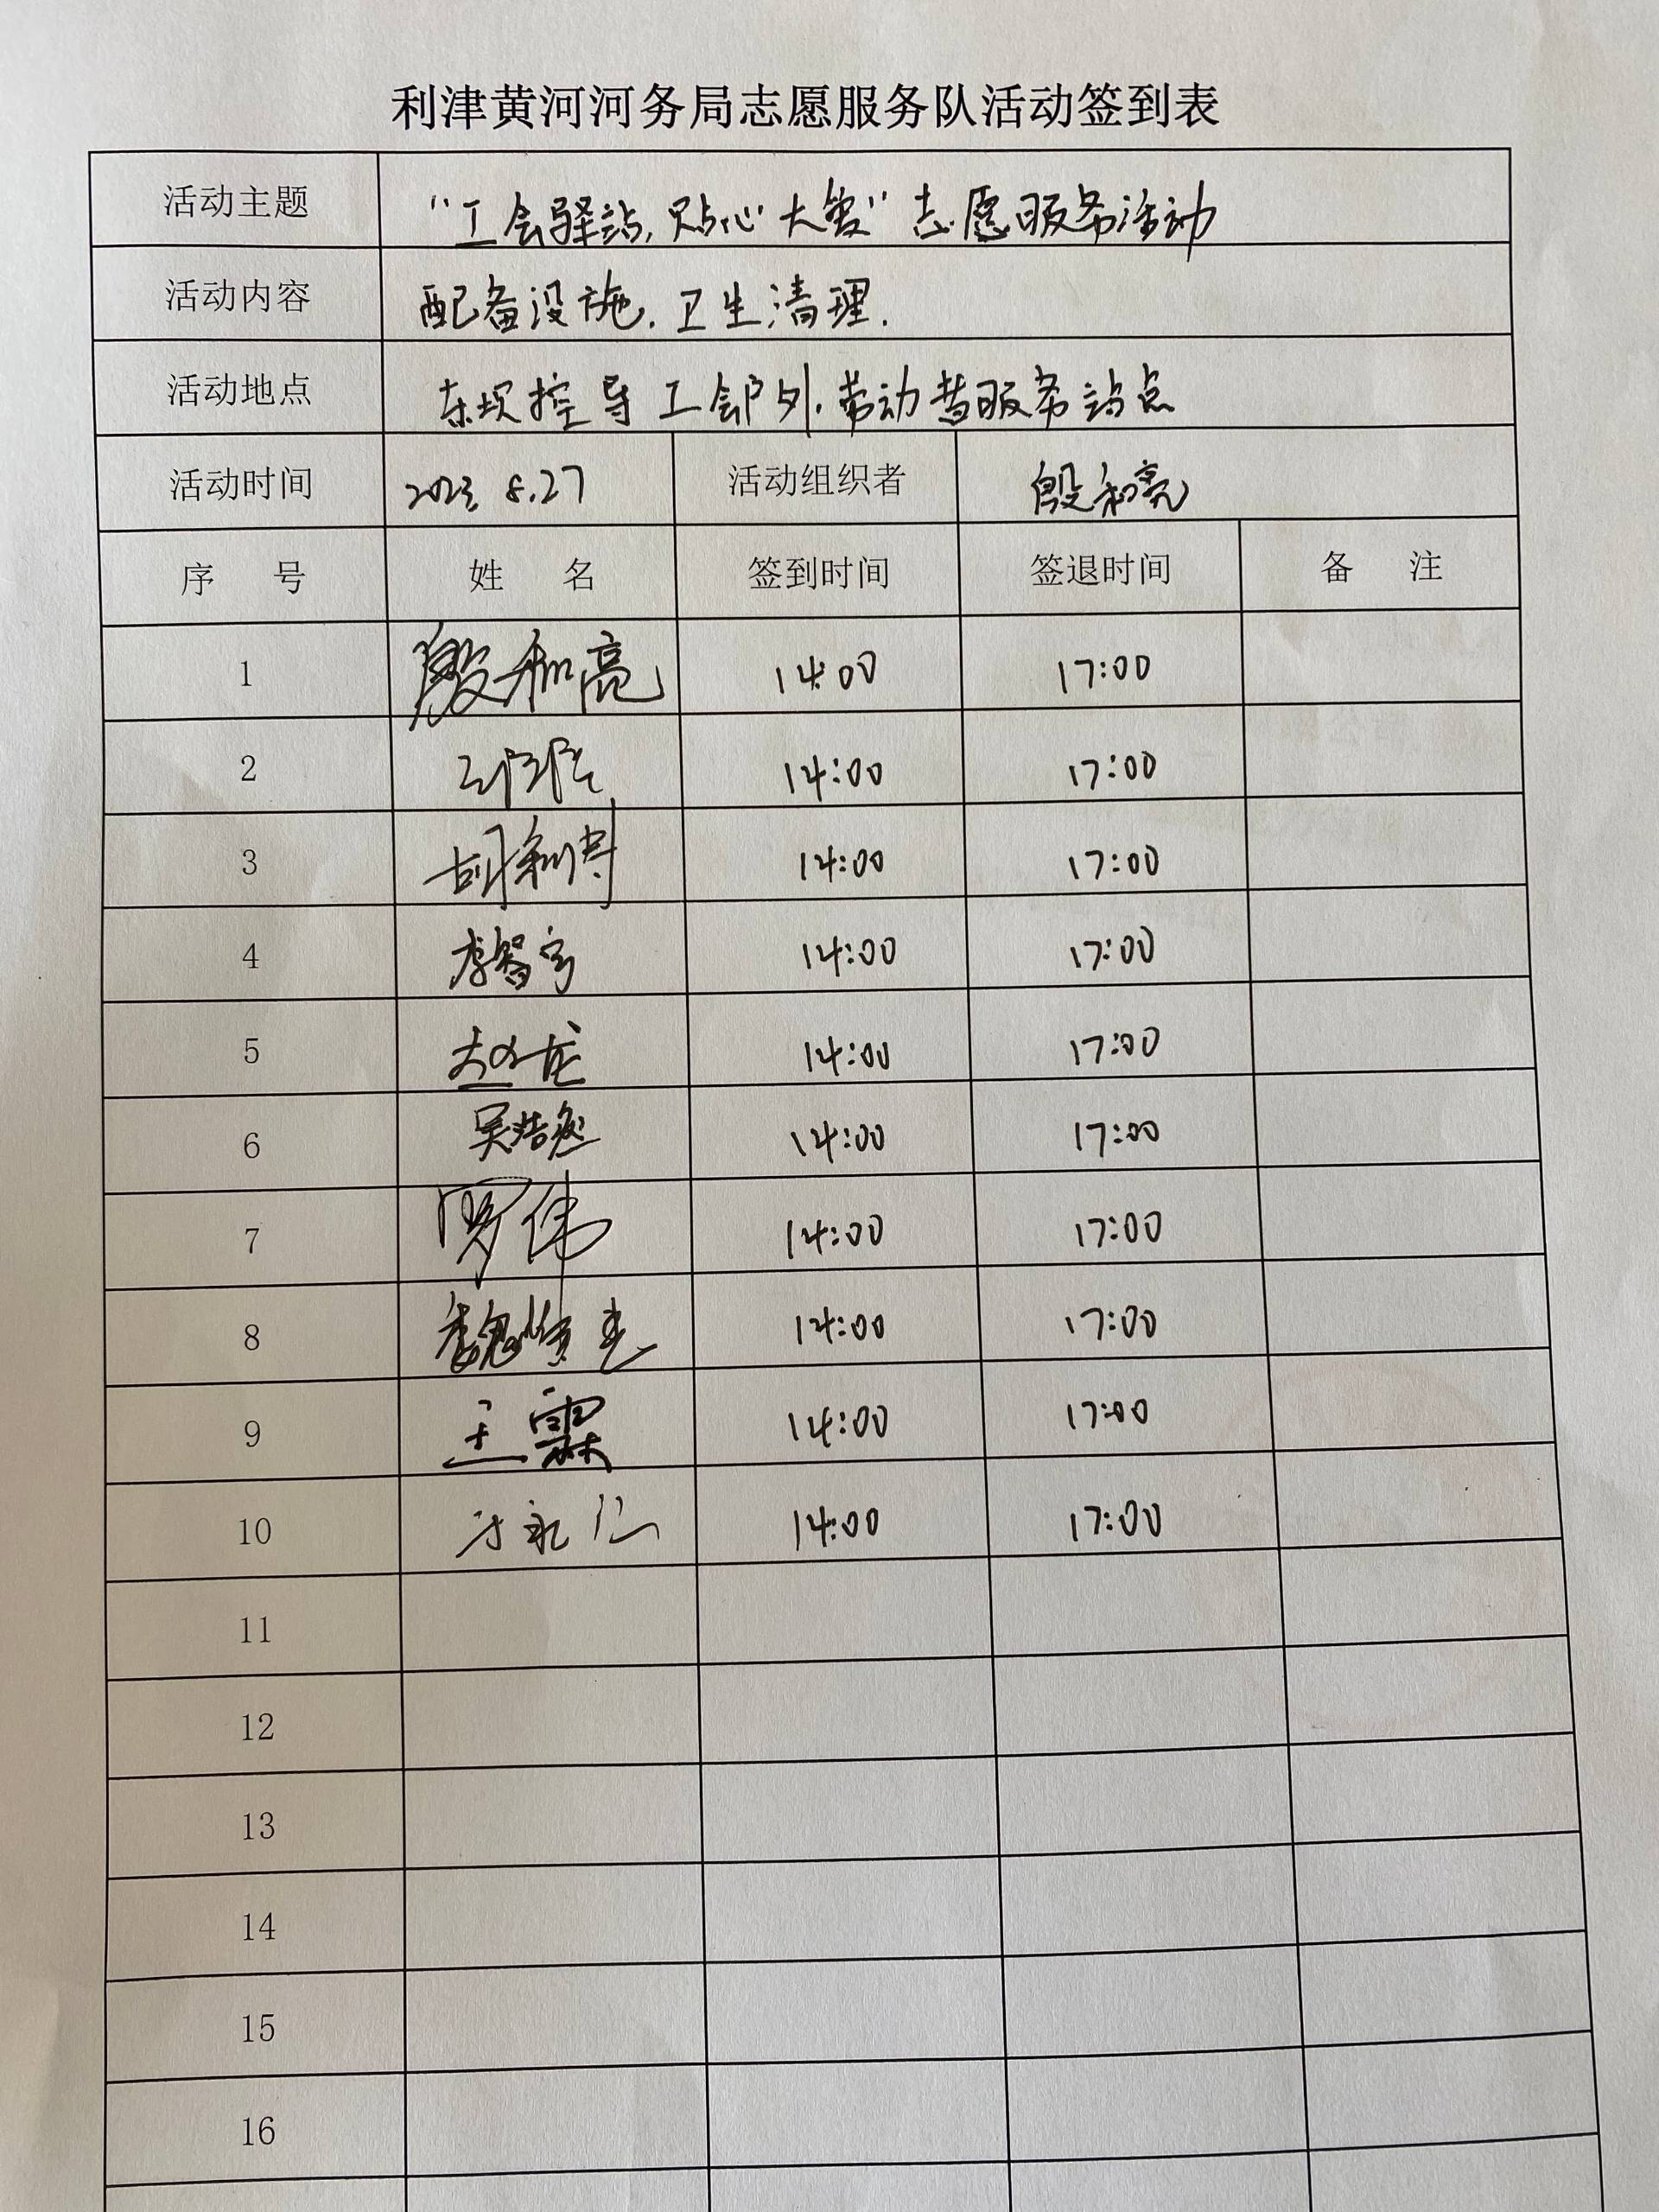 利津黄河河务局志愿服务队活动签到表
活动主题 "工会驿站,贴心大爱"志愿服务活动
活动内容 配备设施.卫生清理.
活动地点 东坝控导工会户外劳动者服务站点
活动时间 2023.8.27 活动组织者 殷和亮
序 号 姓 名 签到时间 签退时间 备 注
1 殷和亮 14:00 17:00
2 14:00 17:00
3 14:00 17:00
4 李智宇 14:00 17:00
5 14:00 17:00
6 14:00 17:00
7 罗伟 14:00 17:00
8 14:00 17:00
9 王霖 14:00 17:00
10 14:00 17:00
11
12
13
14
15
16